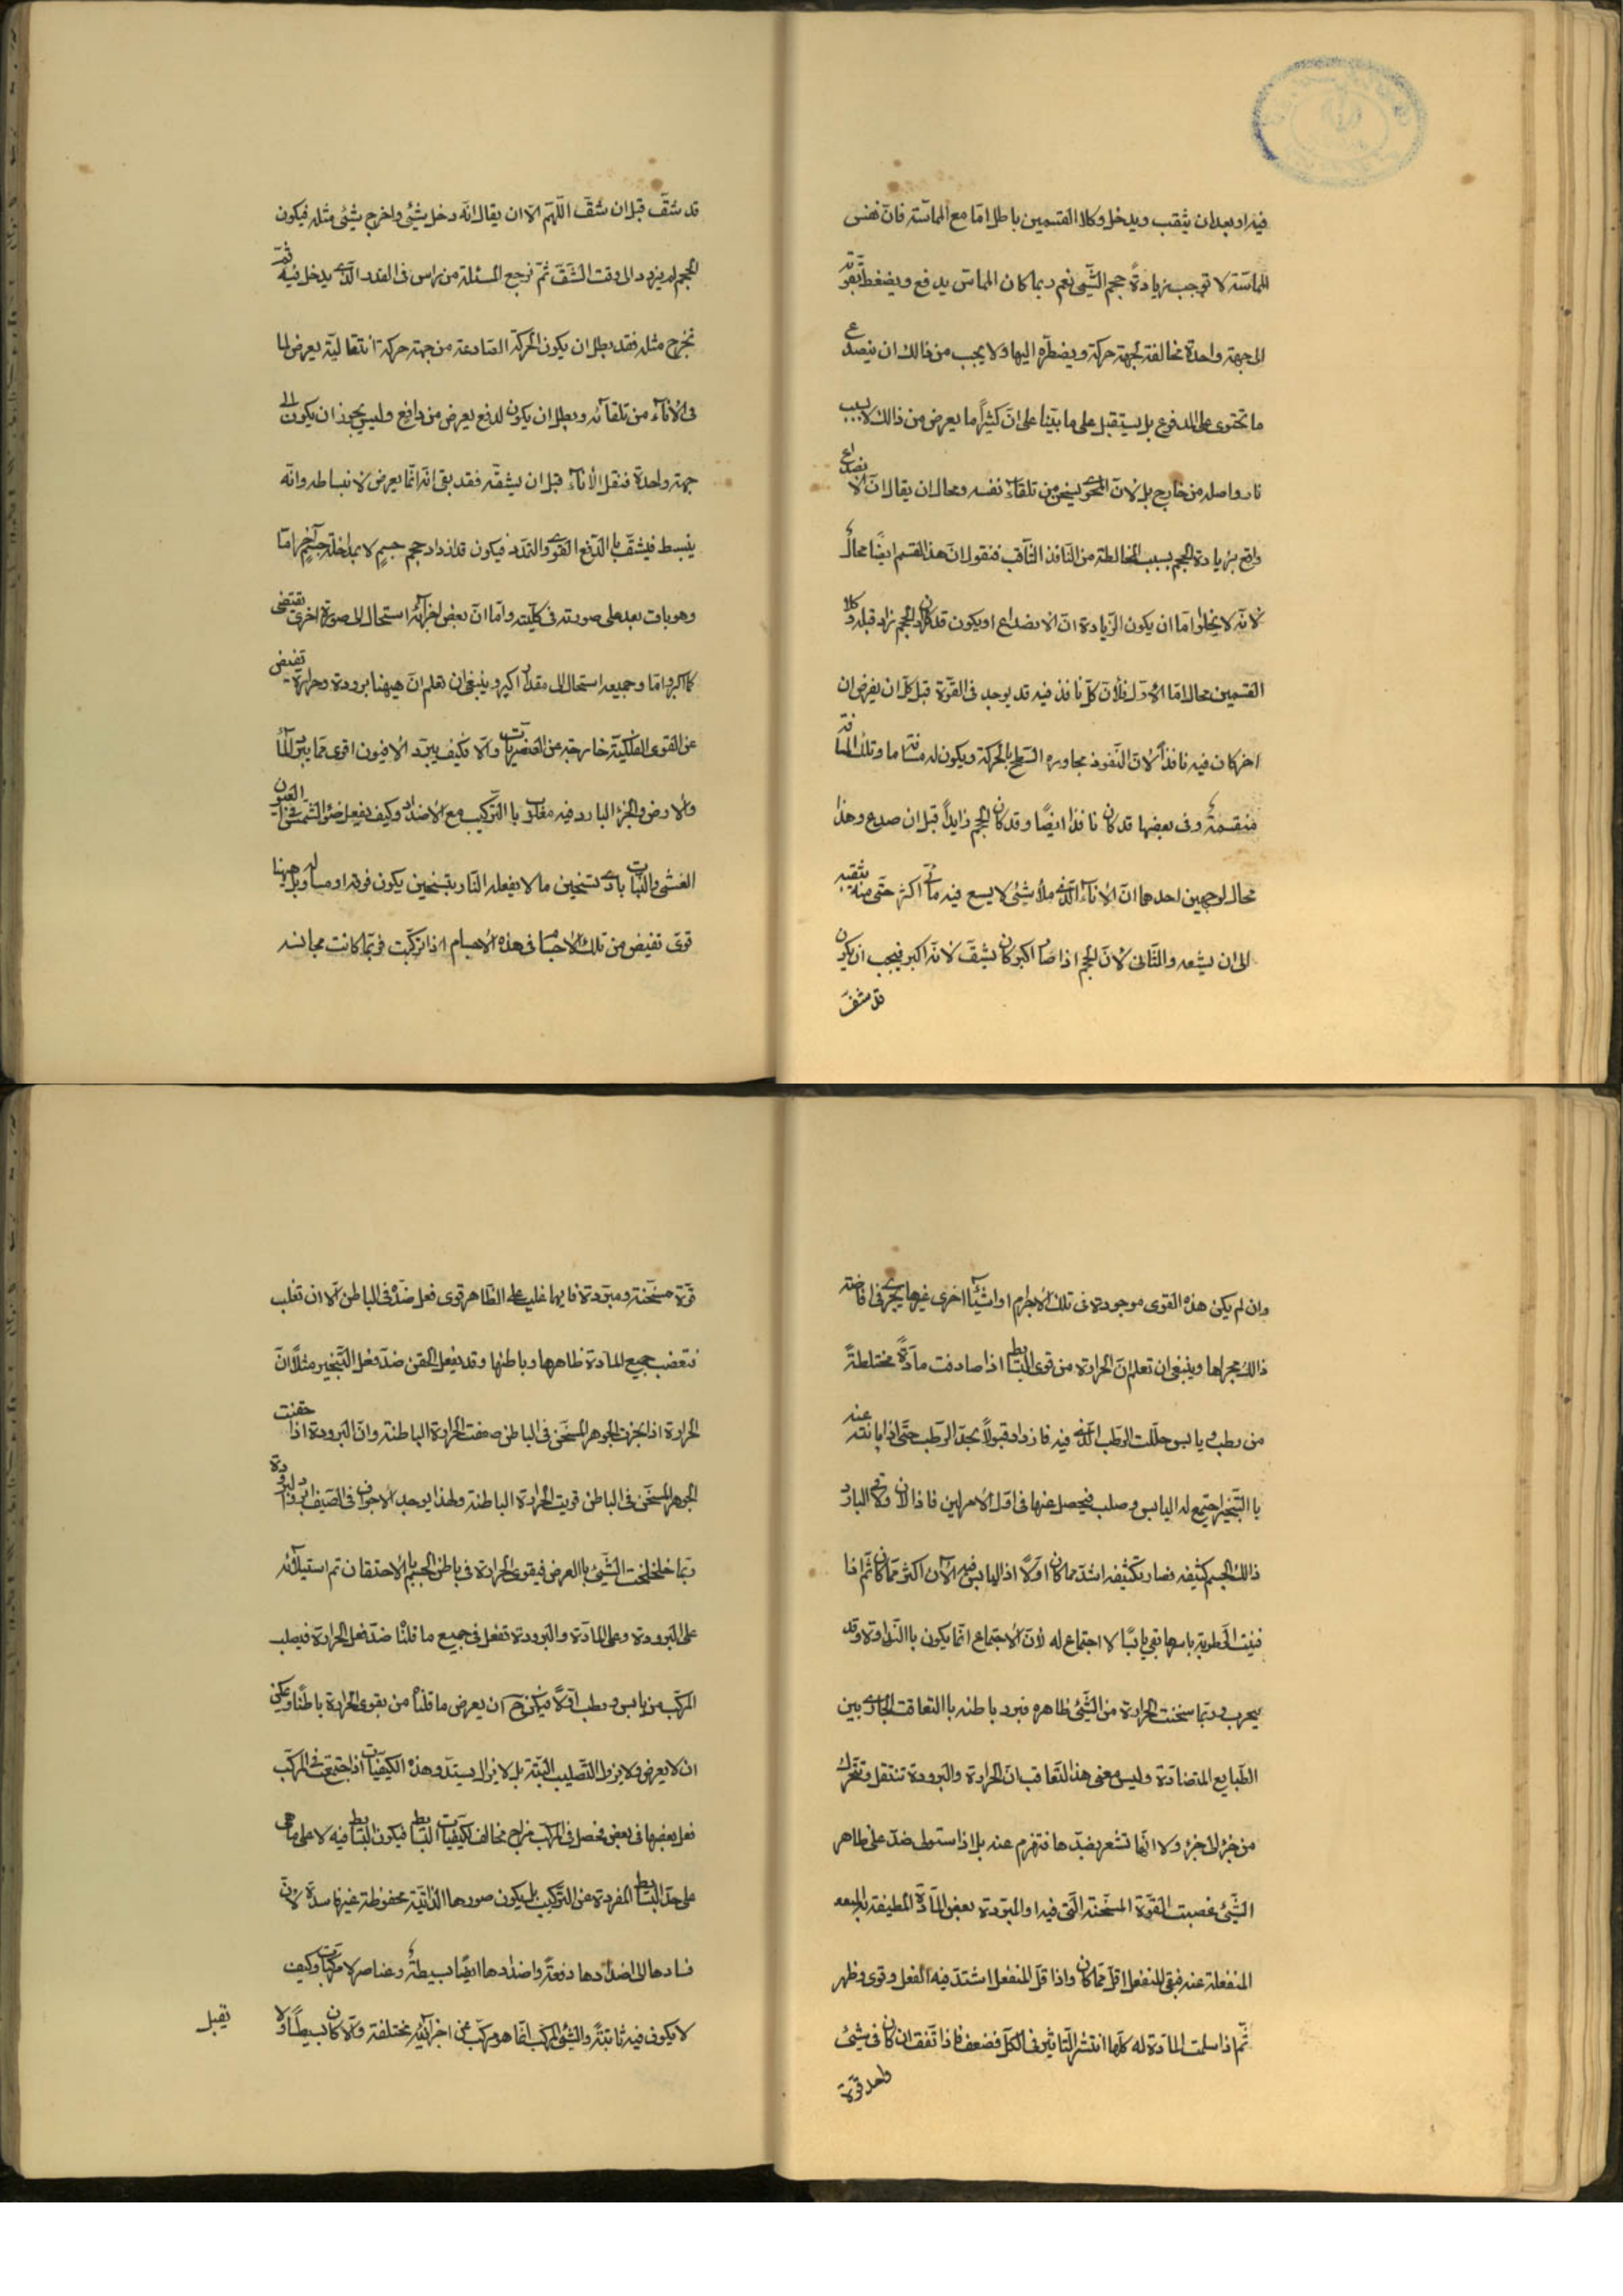 فيه او بعد ان يثقب ويدخل وكلا القسمين باطل امّا مع المماسّة فانّ نفس
المماسّة لا توجب زيادة حجم الشّئ نعم ربما كان المماسّ يدفع ويضغط بقوّته
الى جهة واحدة مخالفة لجهة حركة ويضطرّه اليها ولا يجب من ذالك ان ينصدع
ما تحتوى على المدفوع بل يستقبل على ما بيّنا على انّ كثيرًا ما يعرض من ذالك لا بسبب
نار واصله من خارج بل لانّ المحوى يسخن من تلقاء نفسه ومحال ان يقال انّ الانصداع
واقع بزيادة الحجم بسبب المخالطة من النّافذ الثّاقب فنقول انّ هذا القسم ايضًا محالٌ
لانّه لا يخلوا امّا ان يكون الزّيادة انّ الانصداع او يكون قد كان الحجم زاد قبله وكلا
القسمين محال امّا الاوّل فلأنّ كلّ نافذ فيه قد يوجد فى القوّة قبل كلّ ان يفرض ان
اخر كان فيه نافذًا لانّ النّفوذ مجاوره السّطح بالحركة ويكون له مسافة ما وتلك المسافة
منقسمةٌ وفى بعضها قد كان نافذا ايضًا وقد كان الحجم زايدًا قبل ان صدع وهذا
محال لوجهين احدهما انّ الاناء الّذى ملأ شئ لا يسع فيه مآئى اكثر حتّى منه يثقبه
الى ان يشعه والثّانى لانّ الحجم اذا صار اكبر كان يشقّ لانّه اكبر فيجب ان يكون
قد شقّ
قد شقّ قبل ان شقّ اللّهمّ الّا ان يقال انّه دخل شئ واخرج شئ مثله فيكون
الحجم لم يزدد الى وقت الشّقّ ثمّ نرجع المسئلة من راس فى القدر الّذى يدخل فيه ثمّ
تخرج مثله فقد بطل ان يكون الحركة الصّادعة من جهة حركة انتقالية يعرض لما
فى الاناء من تلقآئه وبطل ان يكون لدفع يعرض من دافع وليس يجوز ان يكون الى
جهة واحدة فنقل الاناء قبل ان يشقّه فقد بقى انّه انّما يعرض لانبساطه وانّه
ينبسط فيشقّ باالدّفع القوى والتمدّد فيكون قد ازداد حجم جسمٍ لا بمداخلة جسمٍ آخر امّا
وهو بات بعد على صورته فى كلّيته وامّا انّ بعض اجزآئه استحال الى صورة اخرى تقتضى
كمّا اكبر وامّا وجميعه استحال الى مقدار اكبر وينبغى ان تعلم انّ هيهنا برودة وحرارة تفيض
عن القوى الفلكيّة خارجة عن العنصريات والّا فكيف يبرّد الافيون اقوى ممّا يبرّد المآء
والارض والجزء البارد فيه مغلوب باالتّركيب مع الاضداد وكيف يفعل ضوء الشّمس فى العيون
العشى والنّبات بادى تسخين ما لا يفعله النّار بتسخين يكون فوقه او مساويا له هيهنا
قوى تفيض من تلك الاجسام فى هذه الاجسام اذا تركّبت فربّما كانت مجانسه
وان لم يكن هذه القوى موجودة فى تلك الاجرام او اشيآء اخرى غيرها يجرى فى افاضته
ذالك مجراها وينبغى ان تعلم انّ الحرارة من قوى البسايط اذا صادفت مآدّةً مختلطةً
من رطب ويابس حلّلت الرّطب الّذى فيه فازداد قبولًا بجدّ الرّطب حتّى اذا بانته عنه
باالتّبخير اجتمع له اليابس وصلب فيحصل عنها فى اوّل الامر لين فاذا لان وقع البارد
ذالك الجسم كثيفه فصار بكثيفه اشدّ مما كان اوّلًا اذ اليابس فيه الآن اكثر ممّا كان ثمّ اذا
فنيت الرّطوبة باسرها بقى يابسًا لا اجتماع له لانّ الاجتماع انّما يكون باالنّداوة وقد
يحرب وربّما سخنت الحرارة من الشّئ ظاهره فبرد باطنه باالتعاقب الجارى بين
الطّبايع المتضادّة وليس معنى هذا التّعاقب انّ الحرارة والبرودة تنتقل وتتحرّك
من جزء الى جزء ولا انّها تشعر بضدّها فتهزم عنه بل اذا استولى ضدّ على ظاهر
الشّئ غصبت القوّة المسخّنة الّتى فيه او المبرّدة بعض المآدّة المطيفة
المنفعلة عنه فبقى المنفعل اقلّ ممّا كان واذا قلّ المنفعل اشتدّ فيه الفعل وقوى وظهر
ثمّ اذا سلمت المادّة له كلّها انتشر التّاثير فى الكلّ فضعف فاذا تّفق ان كان فى شئ
واحد قوّة
قوّة مسخّنة ومبرّدة فايها غلب على الظّاهر قوى فعل ضدّه فى الباطن الّا ان تغلب
فتغضب جميع المادّة ظاهرها وباطنها وقد يفعل الحقن ضدّ فعل التّبخير مثلًا انّ
الحرارة اذا بخرت الجوهر المسخّن فى الباطن ضعفت الحرارة الباطنة وانّ البرودة اذا حقنت
الجوهر المسخّن فى الباطن قويت الحرارة الباطنة ولهذا يوجد الاجواف فى الصّيف ابرد البرودة
ربّما خلخلت الشّئ باالعرض فيقوى الحرارة فى باطن الجسم باالاحتقان ثمّ استيلآئه
على البرودة وعلى المادّة والبرودة تفعل فى جميع ما قلنا ضدّ فعل الحرارة فيصلب
المركّب من يابس ورطب اوّلًا فيكن ح ان يعرض ما قلنا من بقوى الحرارة باطنًا ويكن
ان لا يعرض ولا يزول التّصليب البتّة بل لا يزال يستدّ وهذه الكيفيّات اذا اجتمعت فى المركّب
فعل بعضها فى بعض فحصل فى المركّب مزاج مخالف لكيفيّات البسايط فيكون البسايط فيه لا على ما هى
على حدّ البسايط المفردة عن التّركيب بل يكون صورها الذّاتيّة محفوظة غير فاسدة لانّ
فسادها الى اضدادها دفعةً واضدادها ايضًا بسيطةٌ وعناصر لا مركّبات وكيف
لا يكون فيه ثابتةً والشّئ المركّب انّما هو مركّب عن اجزآئه مختلفة والّا كان بسيطًا ولا
تقبل